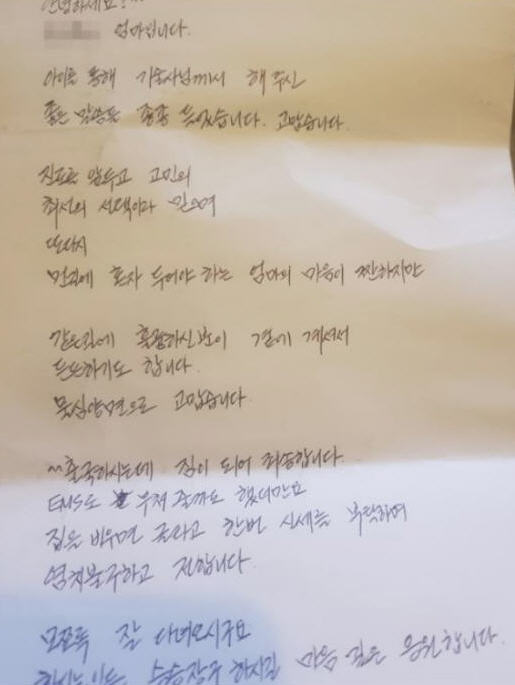 안녕하세요?^^
엄마입니다.
아이를 통해 기술사님께서 해 주신
좋은 말씀을 종종 듣었습니다. 고맙습니다.
진로를 앞두고 고민의
최선의 선택이라 믿으며
또다시
먼길에 혼자 두어야 하는 엄마의 마음이 짠하지만
같은길에 훌륭하신분이 곁에 계셔서
든든하기도 합니다.
물심양면으로 고맙습니다.
~출국하시는데 짐이 되어 죄송합니다.
EMS도 부쳐 줄까도 했더만요
집을 비우며 곤라고 한번 신세를 부탁하며
염치불구하고 전합니다.
모쪼록 잘 다녀오시구요
하시는 일도 승승장구 하시길 마음 깊은 응원합니다.